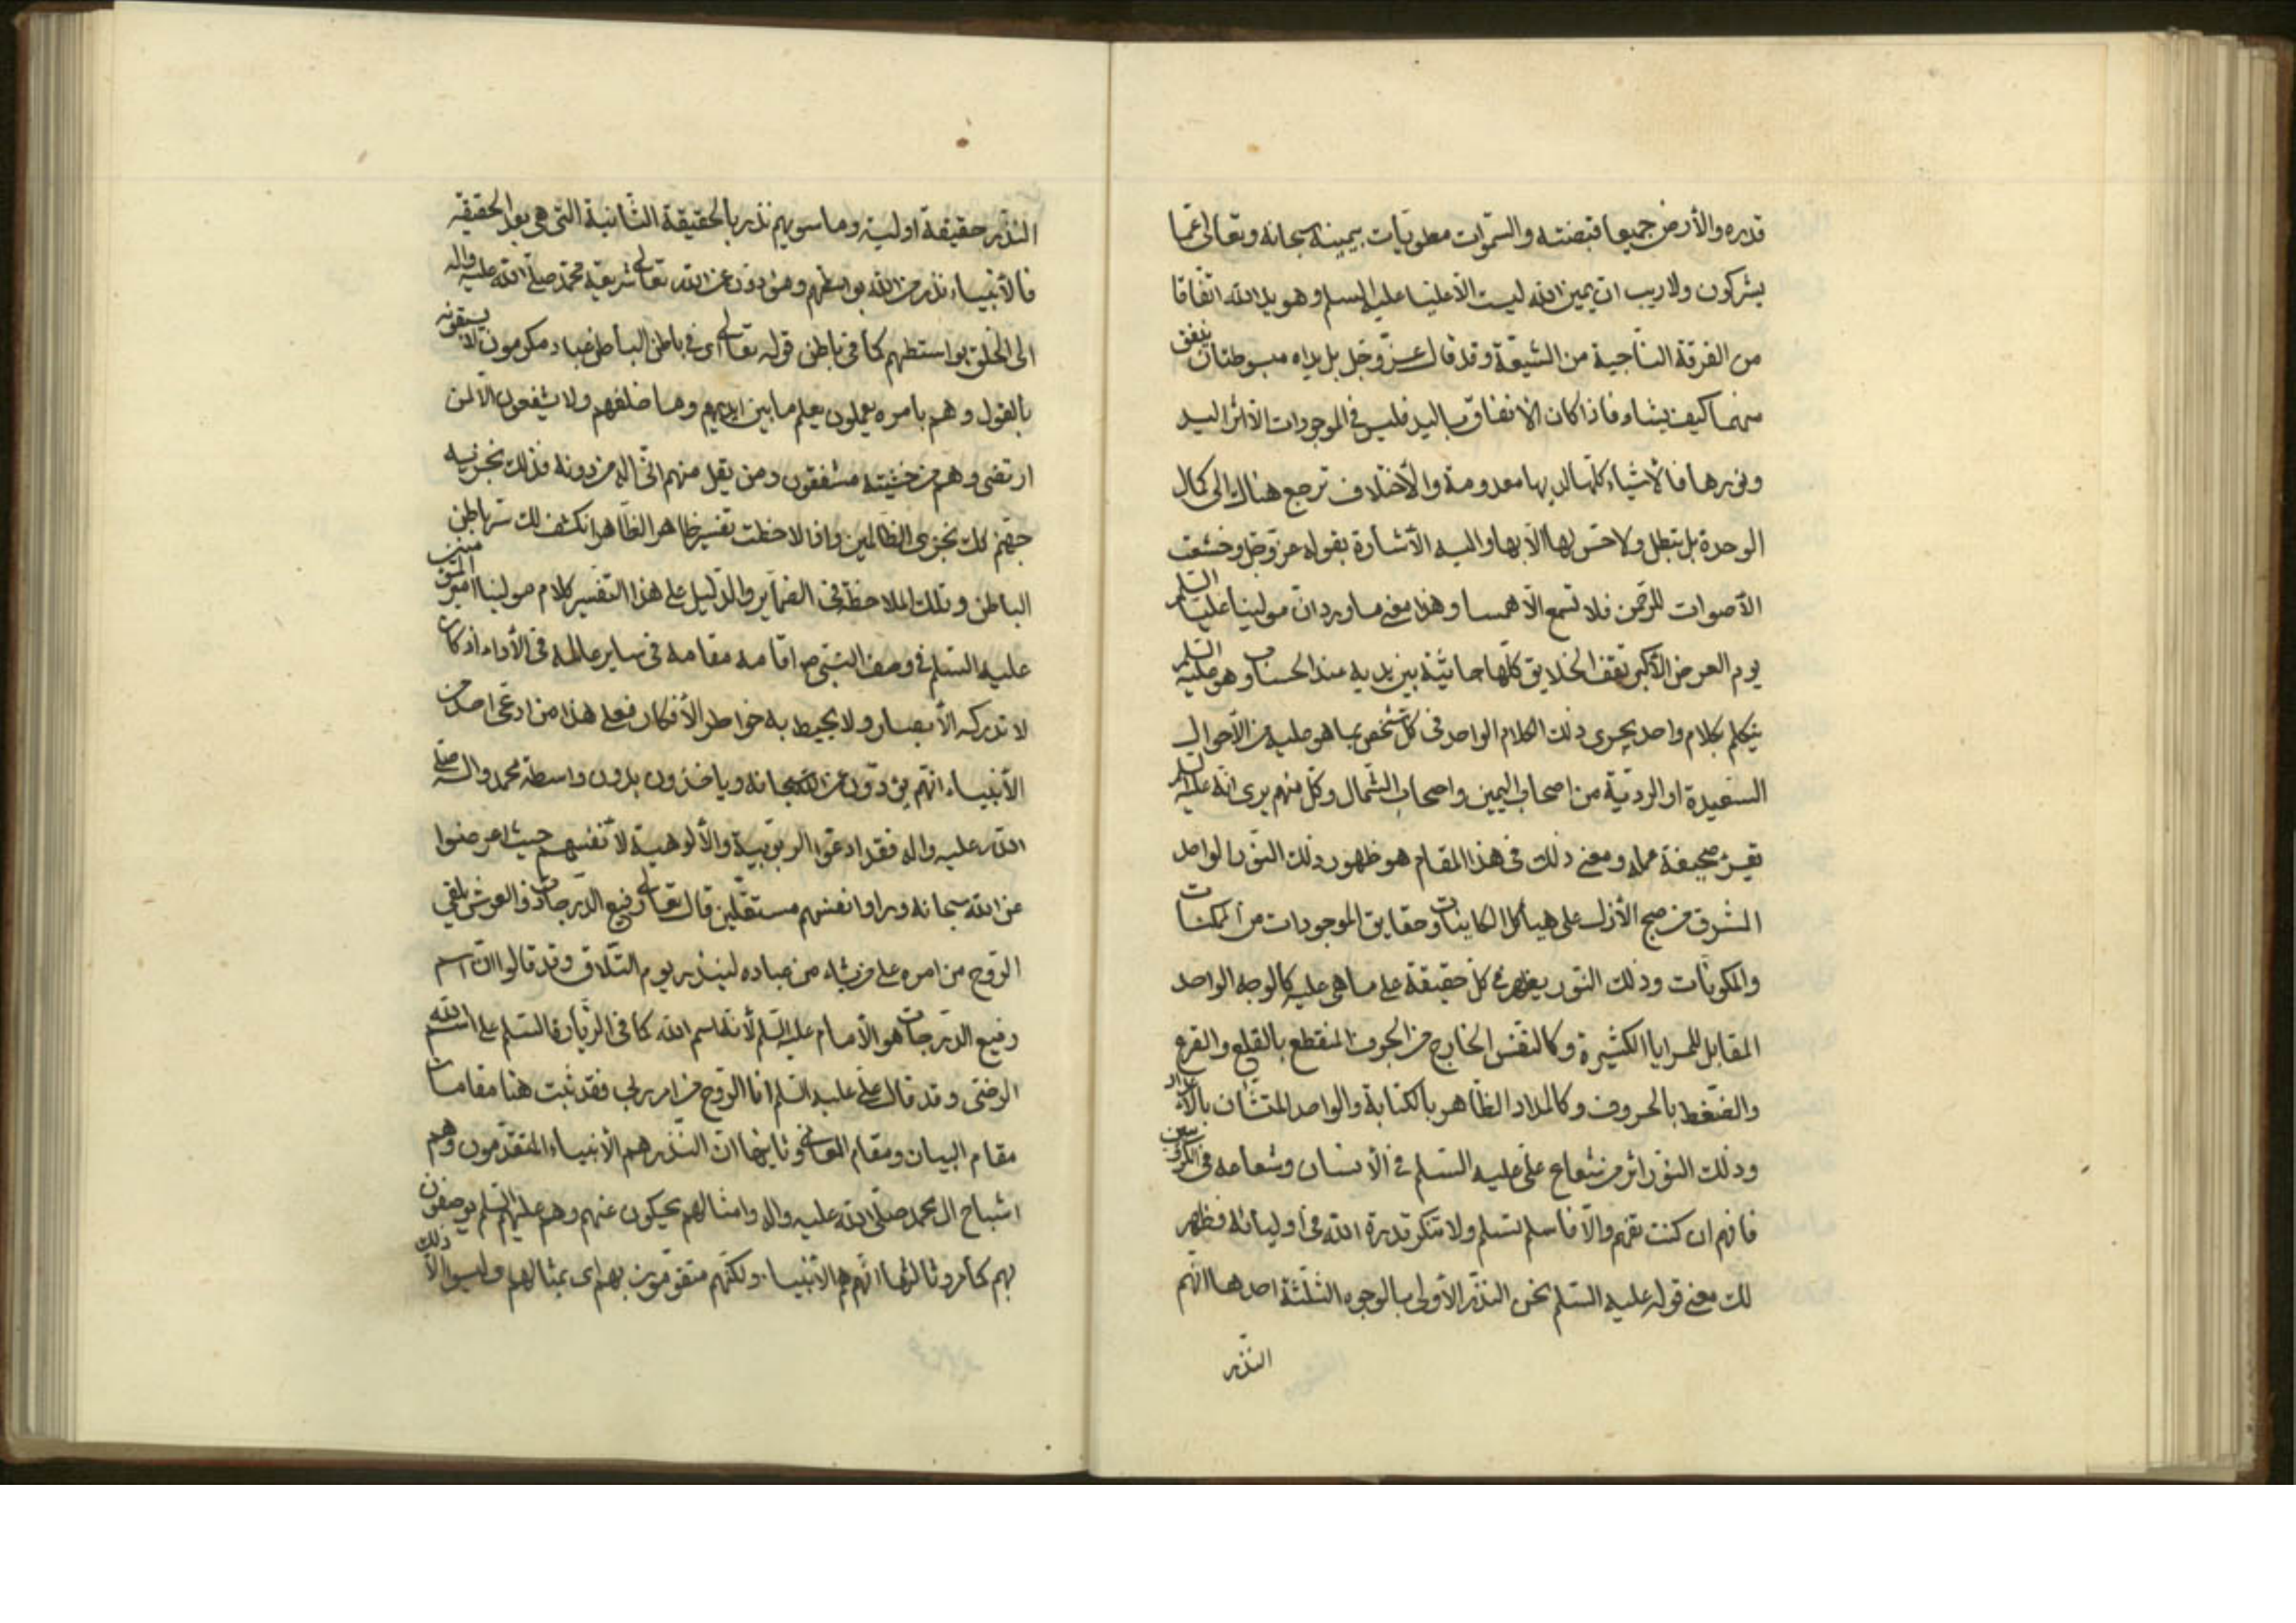 قدره والأرض جميعا قبضته والسّموات مطويّات بيمينه سبحانه وتعالى عمّا
يشركون ولا ريب ان يمين الله ليست الّا عليّا عليه السلم وهو يد الله اتّفاقا
من الفرقة الناجية من الشيعة وقد قال عزّ وجل بل يداه مبسوطتان ينفق
منهما كيف يشاء فاذا كان الانفاق باليد فليس في الموجودات الّا اثر اليد
ونورها فالأشياء كلّها لديها معدومة والأختلاف ترجع هناك الى كمال
الوحدة بل تبطل ولا حسّ لها الّا بها واليه الأشارة بقوله عزّ وجلّ وخشعت
الأصوات للرّحمن فلا تسمع الّا همسا وهذا معنى ما ورد انّ مولينا عليّا السّلم
يوم العرض الأكبر تقف الخلايق كلّها جاثية بين يديه عند الحساب وهو عليه السّلم
يتكلم بكلام واحد يجرى ذلك الكلام الواحد فى كلّ شخص بما هو عليه من الأحوال
السّعيدة او الرديّة من اصحاب اليمين واصحاب الشّمال وكلّ منهم يرى انّه عليه السلم
يقرء صحيفة عمله ومعنى ذلك فى هذا المقام هو ظهور ذلك النّور الواحد
المشرق من صبح الأزل على هياكل الكاينات وحقايق الموجودات من الممكنات
والمكونات وذلك النّور يظهر فى كلّ حقيقة على ما هى عليه كالوجه الواحد
المقابل للمرايا الكثيرة وكالنّفس الخارج من الجوف المنقطع بالقلع والقرع
والضّغط بالحروف وكالمداد الظّاهر بالكتابة والواحد المتشأن بالأعداد
وذلك النّور اثر من شعاع علىّ عليه السّلم فى الأنسان وشعاعه فى الكروبيين
فافهم ان كنت تفهم والّا فاسلم تسلم ولا تنكر قدرة الله فى اوليائه فظهر
لك معنى قوله عليه السّلم نحن النّذر الأولى بالوجوه الثّلثة احدها انّهم
النّذر
النّذر حقيقة اولية وما سويهم نذر بالحقيقة الثّانية الّتى هى بعد الحقيقة
فالأنبياء نذر من الله بواسطتهم ومؤدّون عن الله تعالى شريعة محمّد صلّى الله عليه واله
الى الخلق بواسطتهم كما فى باطن قوله تعالى اى فى باطن الباطن عباد مكرمون لا يسبقونه
بالقول وهم بامره يعملون يعلم ما بين ايديهم وما خلفهم ولا يشفعون الّا لمن
ارتضى وهم من خشيته مشفقون ومن يقل منهم انّى اله من دونه فذلك نجزيه
جهنّم كذلك نجزى الظّالمين واذا لاحظت تفسير ظاهر الظّاهر انكشف لك سرّ باطن
الباطن وتلك الملاحظة فى الضّماير والدّليل على هذا التّفسير كلام مولينا امير المؤمنين
عليه السّلم فى وصف النبّى ص اقامه مقامه فى ساير عالمه فى الأداء اذ كان
لا تدركه الأبصار ولا يحيط به خواطر الأفكار فعلى هذا من ادعى احد من
الأنبياء انّهم يؤدّون عن الله سبحانه وياخذون بدون واسطة محمد واله صلّى
الله عليه واله فقد ادعوا الربوبيّة والألوهيّة لأنفسهم حيث اعرضوا
عن الله سبحانه ورأوا انفسهم مستقلّين قال تعالى رفيع الدّرجات ذو العرش يلقى
الرّوح من امره على من يشاء من عباده لينذر يوم التّلاق وقد قالوا انّ اسم
رفيع الدّرجات هو الأمام عليه السّلم لأنّه اسم الله كما فى الزّيارة السّلم على اسم الله
الرضىّ وقد قال علىّ عليه السّلم انا الرّوح من امر ربّى فقد ثبت هنا مقامات
مقام البيان ومقام المعانى وثانيها انّ النّذر هم الأنبياء المتقدّمون وهم
اشباح ال محمد صلّى الله عليه واله وامثالهم يحكون عنهم وهم عليهم السّلم يوصفون
بهم كما مرّ وثالثها انّهم هم الأنبياء ولكنّهم متقوّمون بهم اى بمثالهم وليسوا الّا ذلك